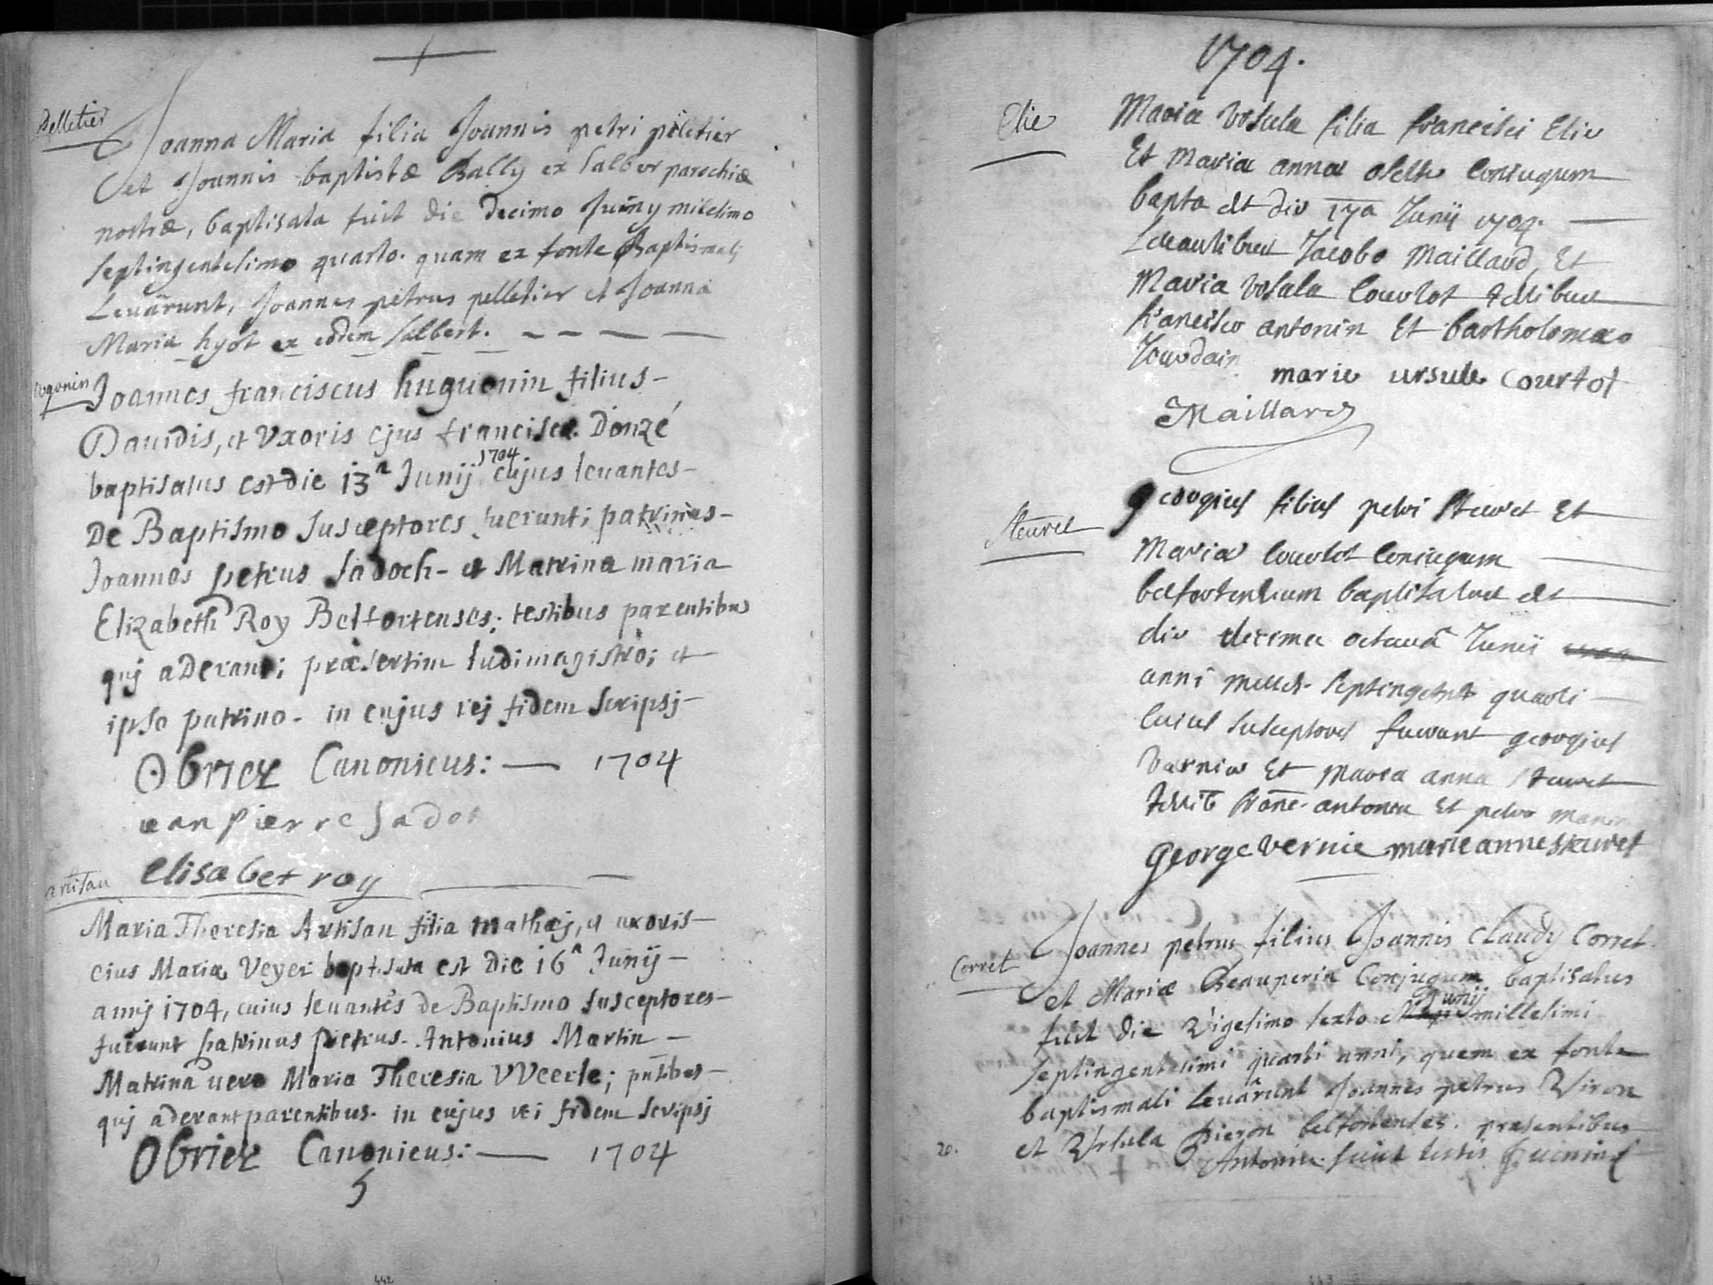 Pelletier
Joanna Maria filia Joannis petri peletier
et Joannis baptistæ Bally ex salber parochiæ
nostræ, baptisata fuit die decimo Juny milesimo
septingentesimo quarto. quam ex fonte Baptismali
Levârunt, Joannes petrus pelletier et Joanna
Maria hyot ex eodem salbert.
Joannes franciscus huguenin filius
Davidis, et Uxoris ejus franciscæ Donzé
baptisatus est die 13a Junij 1704 cujus levantes
De Baptismo susceptores fuerunt; patrinus
Joannes petrus Sadoch et Matrina maria
Elizabeth Roy Belfortenses; testibus parentibus
qui aderant; præsertim ludimagistro; et
ipso patrino. in cujus rej fidem scripsj
Obriez Canonicus: 1704
ean pierre Sadot
elisabet roy
artisan
Maria Theresia Artisan filia mathæj, et uxoris
eius Mariæ Veyer baptisata est Die 16a Junij
annj 1704, cuius levantes de Baptismo susceptores
fuerunt patrinus petrus Antonius Martin
Matrina vero Maria Theresia VVeerle; pntibus
quj aderant parentibus. in cujus rei fidem scripsj
Obriez Canonicus: 1704
5
442
1704.
Elie
Maria Ursula filia francisci Elie
Et Maria anna conjugum
bapta est die 17a Junii 1704.
Levantibus Jacobo Maillard, Et
Maria Ursula Courtot testibus
francisco antonin Et bartholomæo
Jourdain
marie ursule Courtot
Maillard
Steuret
georgius filius petri Steuret Et
Maria Courtot Conjugum
belfortensium baptisatus est
die decima octava Junii
anni milles. septingetest quarti
cuius susceptores fuerunt georgius
Vernier Et Maria anna Steuret
testib franc. antonin Et petro
George vernie marie anne steuret
Corret
Joannes petrus filius Joannis Claudy Corret
et Mariæ Beauperin Conjugum baptisatus
fuit die Vigesimo sexto Junij millesimi
septingentesimi quarti anni, quem ex fonte
baptismali levârunt Joannes petrus Viron
et Ursula pieron belfortenses. præsentibus
20.